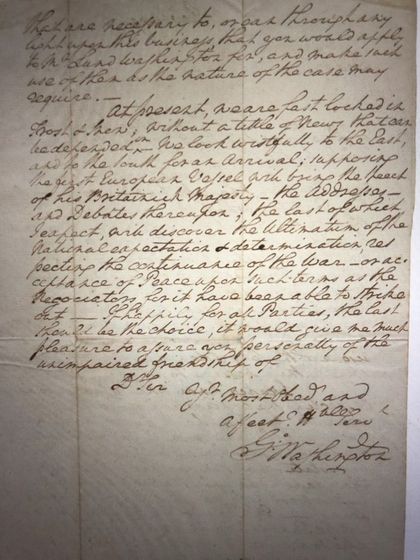 that are necessary to, or can through any
light upon this business that you would apply
to Mr. Lund Washington for, and make such
use of them as the nature of the case may
require. —
At present, we are fast locked in
Frost & Snow; without a tittle of News that can
be depended on — We look wistfully to the East,
and to the South for an Arrival; supposing
the first European Vessel will bring the Speech
of his Britannick Majesty — the Addresses —
and Debates thereupon; the last of which
I expect, will discover the Ultimatum of the
National expectation & determination res
pecting the continuance of the War — or ac
ceptance of Peace upon such terms as the
Negociators for it have been able to strike
out — If happily for all Parties, the last
should be the choice, it would give me much
pleasure to assure you personally of the
unimpaired friendship of
Dr Sir
Yr. Most Obed. and
Affect. Hble Servt
Go. Washington